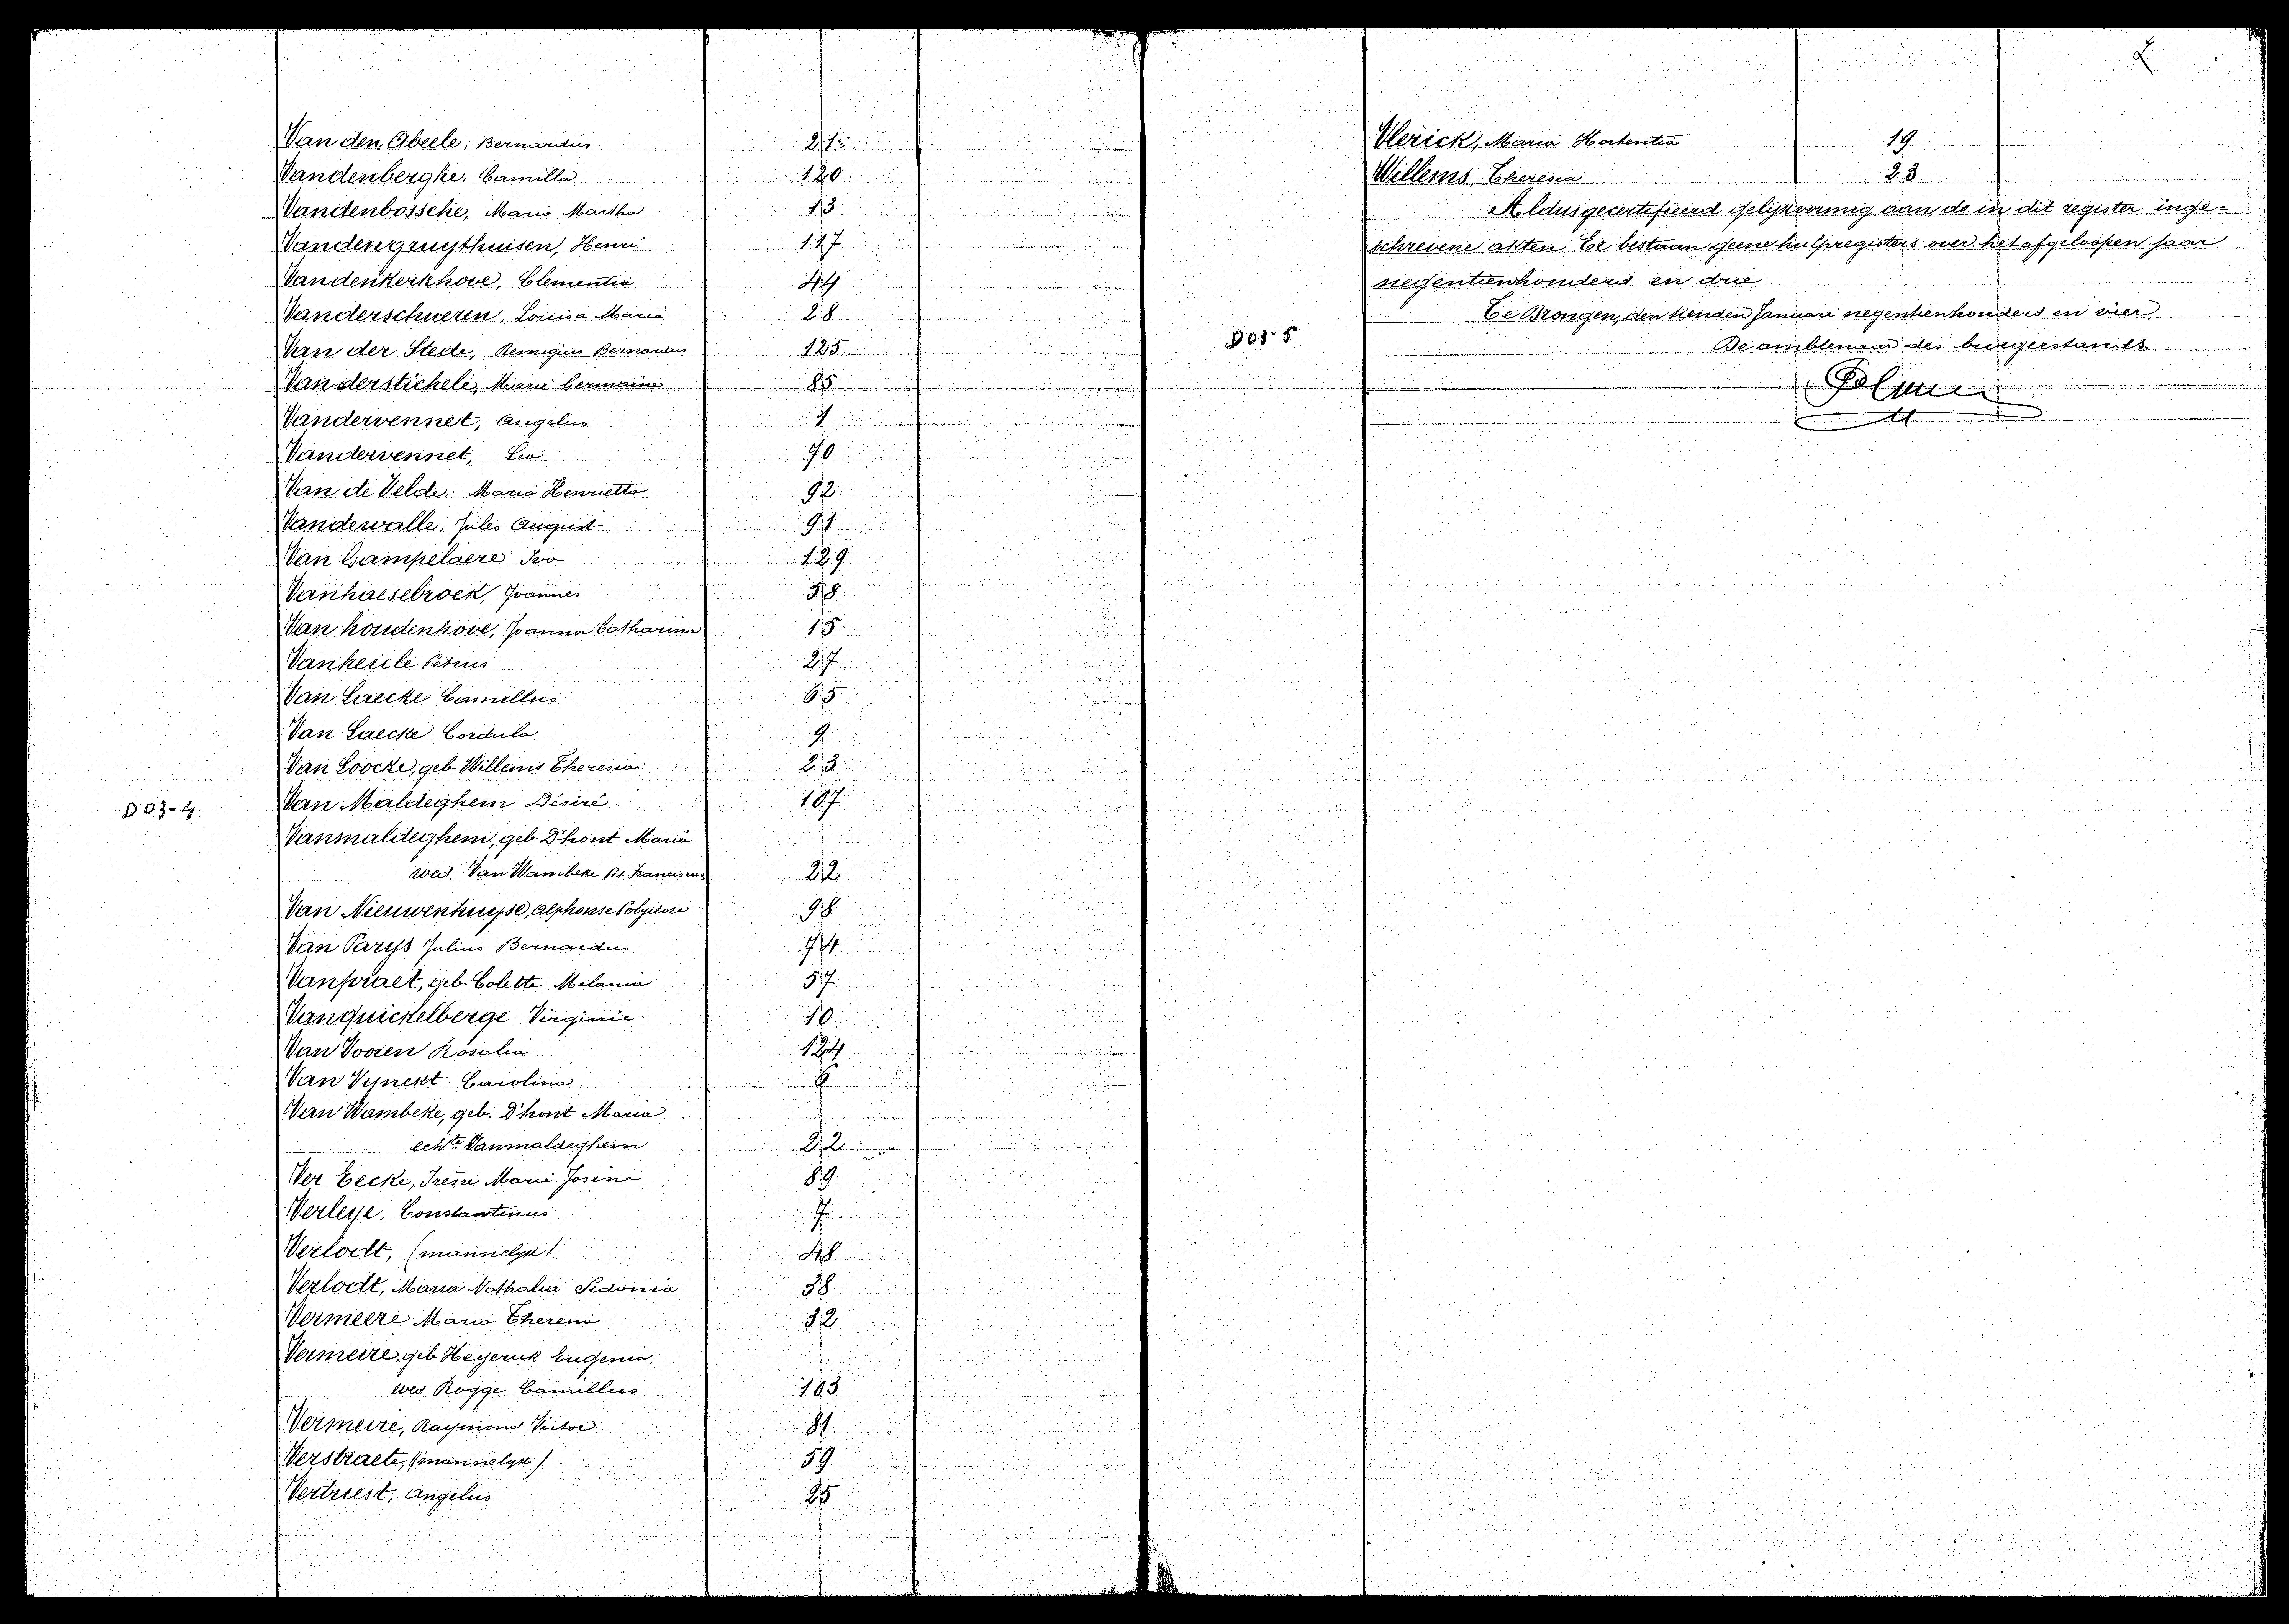 Van den Abeele, Bernardus 21
Vandenberghe, Camilla 120
Vandenbossche, Maria Martha 13
Vandengruythuisen, Henri 117
Vandenkerkhove, Clementia 44
Vanderschueren, Louisa Maria 28
Van der Stede, Remigius Bernardus 125
Vanderstichele, Marie Germaine 85
Vandervennet, Angelus
Vandervennet, Leo 70
Van de Velde, Maria Henrietta 92
Vandewalle, Jules August 91
Van Gampelaere Ivo 129
Vanhaesebroek, Joannes 58
Van houdenhove, Joanna Catharina 15
Vankeule Petrus 27
Van Laecke Camillus 65
Van Laecke Cordula 9
Van Loocke, geb Willems Theresia 23
D03-4
Van Maldeghem Désiré 107
Vanmaldeghem, geb D'hont Maria
wed. Van Wambeke Pet. Franciscus 22
Van Nieuwenhuyse, Alphonse Polydore 98
Van Parys Julius Bernardus 74
Vanpraet, geb. Colette Melania 57
Vanquickelberge Virginie 10
Van Vooren Rosalia 124
Van Vynckt. Carolina 6
Van Wambeke, geb. D'hont Maria
echte Vanmaldeghem 22
Ver Eecke, Irène Marie Josine 89
Verleye, Constantinus 7
Verlodt, (mannelyk) 48
Verlodt, Maria Nathalia Sidonia 38
Vermeere Maria Theresia 32
Vermeire, geb Heyerick Eugenia,
wed Rogge Camillus 103
Vermeire, Raymond Victor 81
Verstraete, (mannelyk) 59
Vertriest, Angelus 25
Vlerick, Maria Hortentia 19
Willems Theresia 23
Aldus gecertifieerd gelijkvormig aan de in dit register inge-
schrevene akten. Er bestaan geene hulpregisters over het afgeloopen jaar
negentienhonderd en drie
Te Drongen, den tienden Januari negentienhonderd en vier
D03-5
De ambtenaar des burgerstands